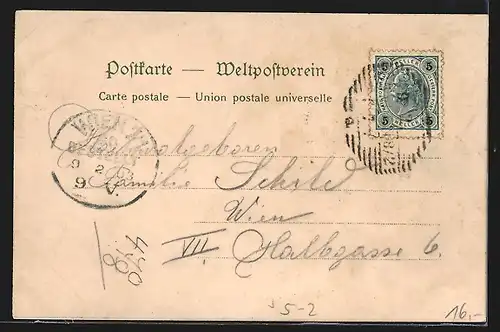 Postkarte — Weltpostverein
Carte postale — Union postale universelle
5 5
5 5
WIEN
9 2
9 V.
Wohlgeboren
Familie Schild
Wien
VII. Halbgasse 6.
5-2
16,-